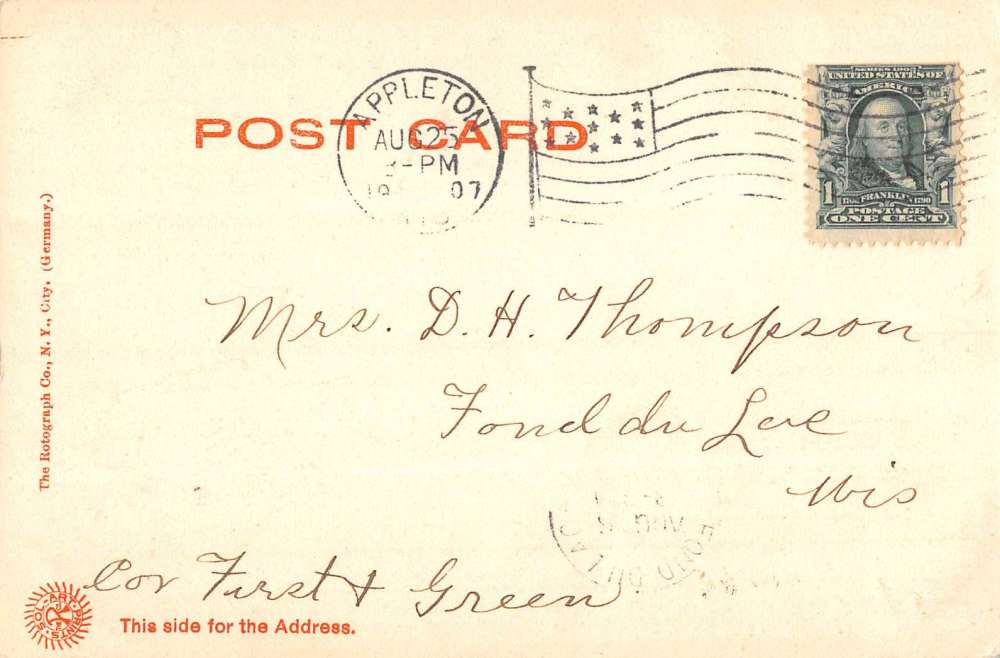 POST CARD
APPLETON
AUG 25
3-PM
19 07
SERIES 1902
UNITED STATES OF
AMERICA
1 1
1706 FRANKLIN 1790
POSTAGE
ONE CENT
The Rotograph Co., N. Y., City. (Germany.)
Mrs. D. H. Thompson
Fond du Lac
Wis
FOND DU LAC
AUG
Cor First & Green
SOL-ART-PRINTS
This side for the Address.